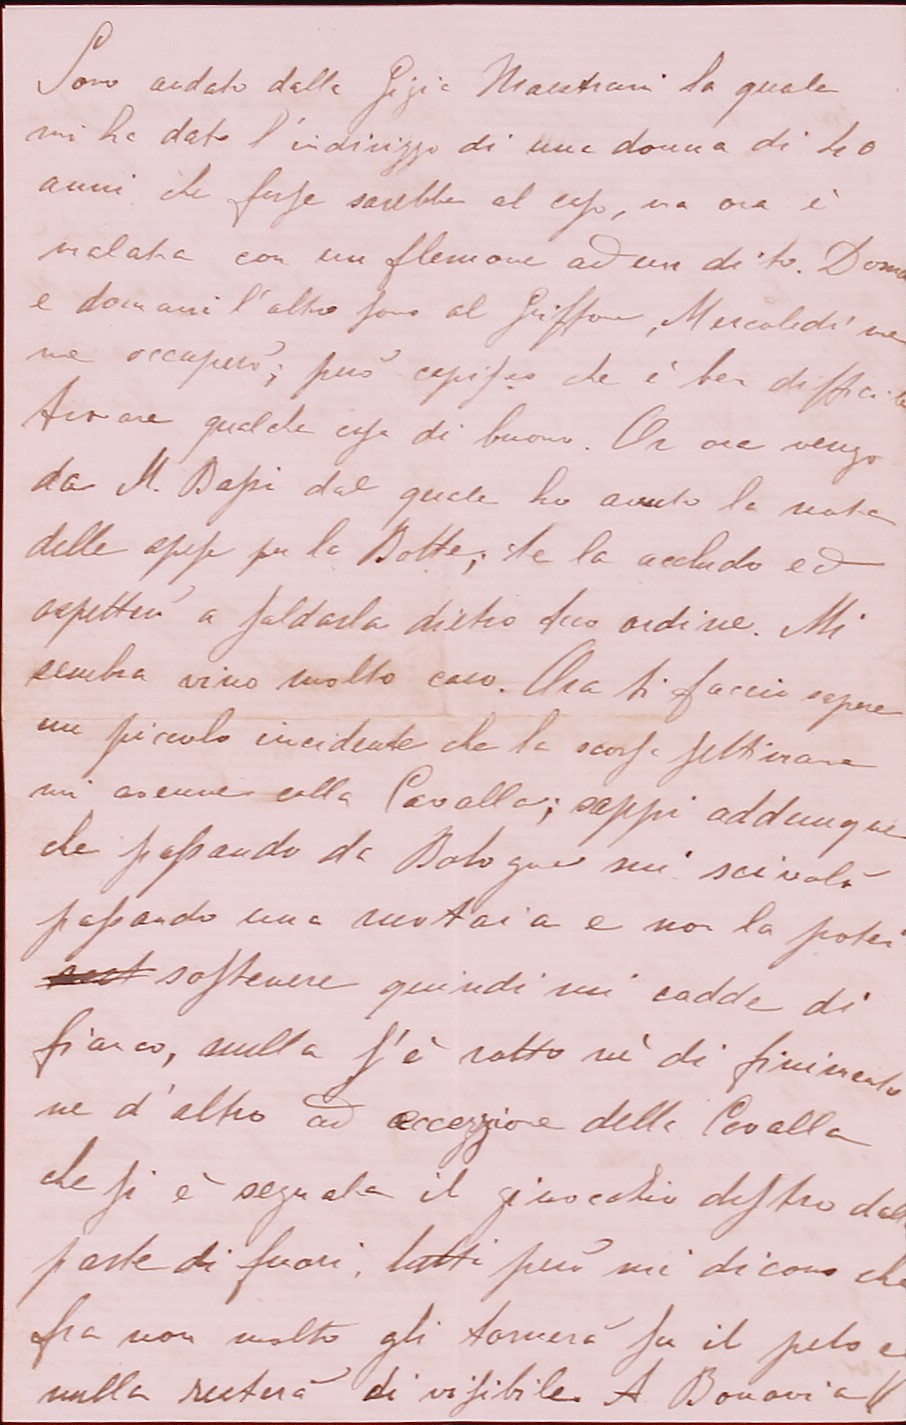 Sono andato dalla Gigia Maestrani la quale
mi ha dato l'indirizzo di una donna di 40
anni che forse sarebbe al caso, ma ora è
malata con un flemone ad un dito. Doma
e domani l'altro sono al Griffone, Mercoledì me
ne occuperò; però capisco che è ben difficile
trovare qualche cosa di buono. Or ora vengo
da M. Bassi dal quale ho avuto la nota
delle spese per la Botte; te la accludo ed
aspetterò a saldarla dietro tuo ordine. Mi
sembra vino molto caro. Ora ti faccio sapere
un piccolo incidente che la scorsa settimana
mi avenne colla Cavalla; sappi addunque
che passando da Bologna mi scivolò
passando una rotaia e non la potei
sostenere quindi mi cadde di
fianco, nulla s'è rotto nè di finimento
ne d'altro ad eccezzione della Cavalla
che si è segnata il ginocchio destro dalla
parte di fuori, tutti però mi dicono che
fra non molto gli tornerà su il pelo e
nulla resterà di visibile. A Bonavia